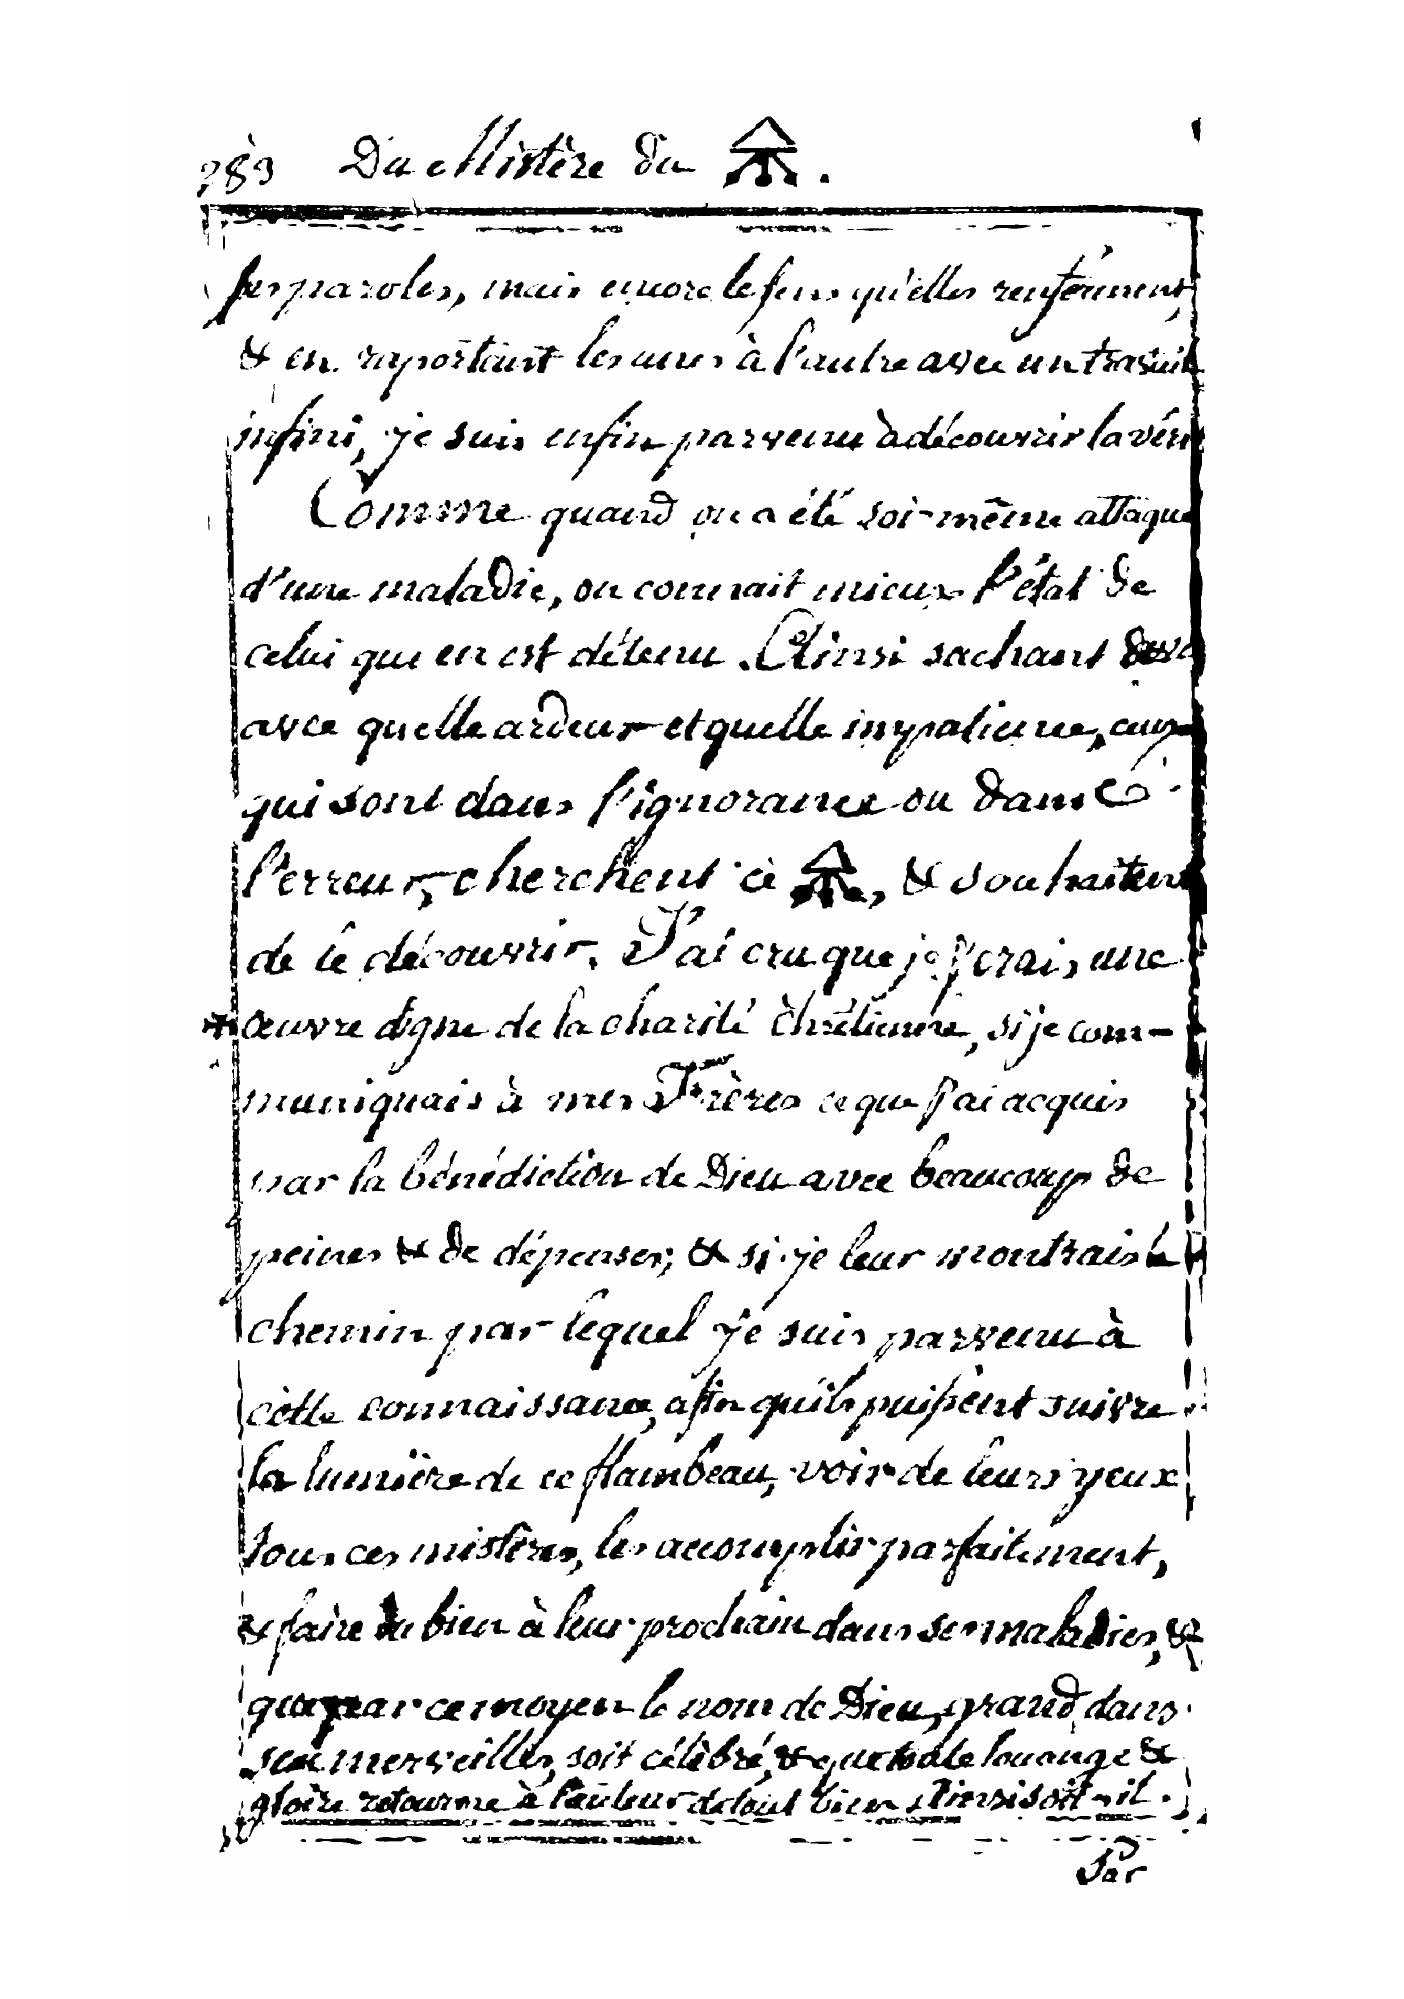 283 Du Mistère du 🜍.
ses paroles, mais encore le sens qu'elles renferment,
& en raportant les unes à l'autre avec un travail
infini, je suis enfin parvenu à découvrir la
Comme quand on a été soi-même attaqué
d'une maladie, on connait mieux l'état de
celui qui en est détenu. Ainsi sachant
avec quelle ardeur et quelle impatience, ceux
qui sont dans l'ignorance ou dans
l'erreur, cherchent ce 🜍, & souhaitent
de le découvrir. J'ai cru que je ferais une
œuvre digne de la charité chrêtienne, si je com-
muniquais à mes Frères ce que j'ai acquis
par la bénédiction de Dieu avec beaucoup de
peines & de dépenses; & si je leur montrais le
chemin par lequel je suis parvenu à
cette connaissance, afin qu'ils puissent suivre
la lumière de ce flambeau, voir de leurs yeux
tous ces mistères, les accomplir parfaitement,
& faire du bien à leur prochain dans ses maladies, &
que par ce moyen le nom de Dieu, grand dans
ses merveilles, soit célèbré, & que toute louange &
gloire retourne à l'auteur de tout bien. Ainsi soit-il.
Par